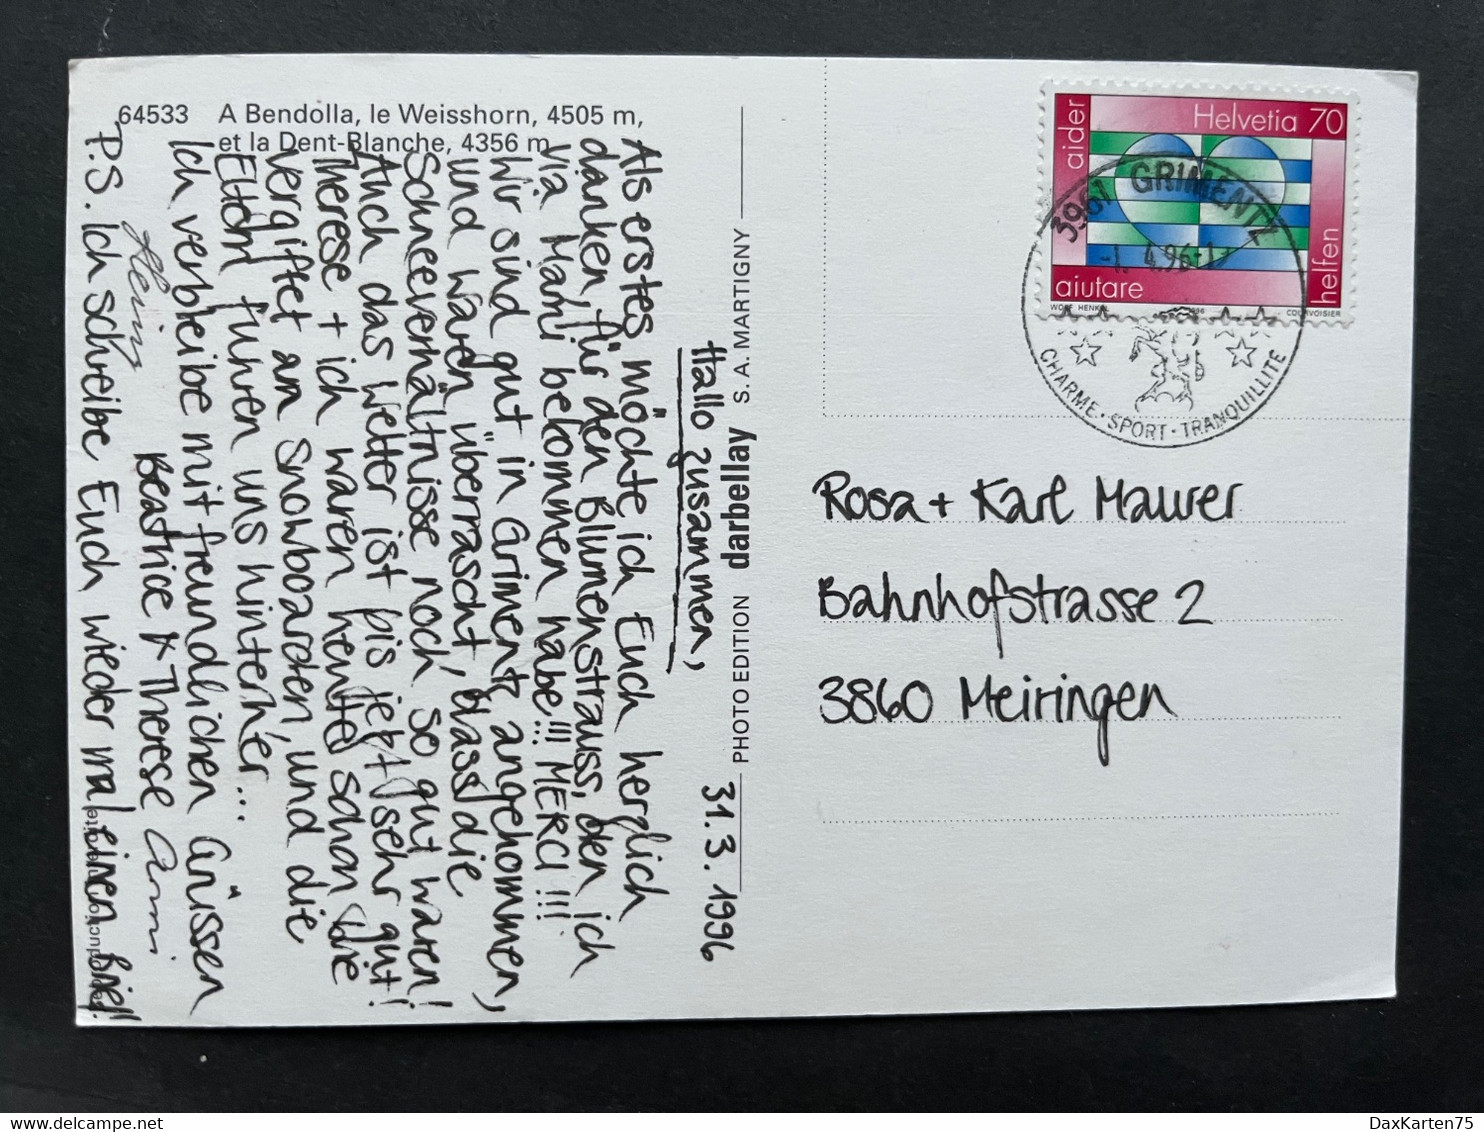 64533 A Bendolla, le Weisshorn, 4505 m,
et la Dent-Blanche, 4356 m
31.3.1996
Hallo zusammen,
Als erstes möchte ich Euch herzlich
danken, für den Blumenstrauss, den ich
via Mami bekommen habe!!! MERCI!!!
Wir sind gut in Grimentz angekommen,
und waren überrascht, dass die
Schneeverhältnisse noch so gut waren!
Auch das Wetter ist bis jetzt sehr gut!
Therese + ich waren heute schon wie
vergiftet am Snowboarden, und die
Eltern fuhren uns hinterher...
Ich verbleibe mit freundlichen Grüssen
Beatrice + Therese
Heinz
P.S. Ich schreibe Euch wieder mal einen Brief!
PHOTO EDITION darbellay S. A. MARTIGNY
Helvetia 70
aider
aiutare
helfen
COURVOISIER
3961 GRIMENTZ
-1. 4.96-1
CHARME · SPORT · TRANQUILLITE
Rosa + Karl Maurer
Bahnhofstrasse 2
3860 Meiringen
DaxKarten75